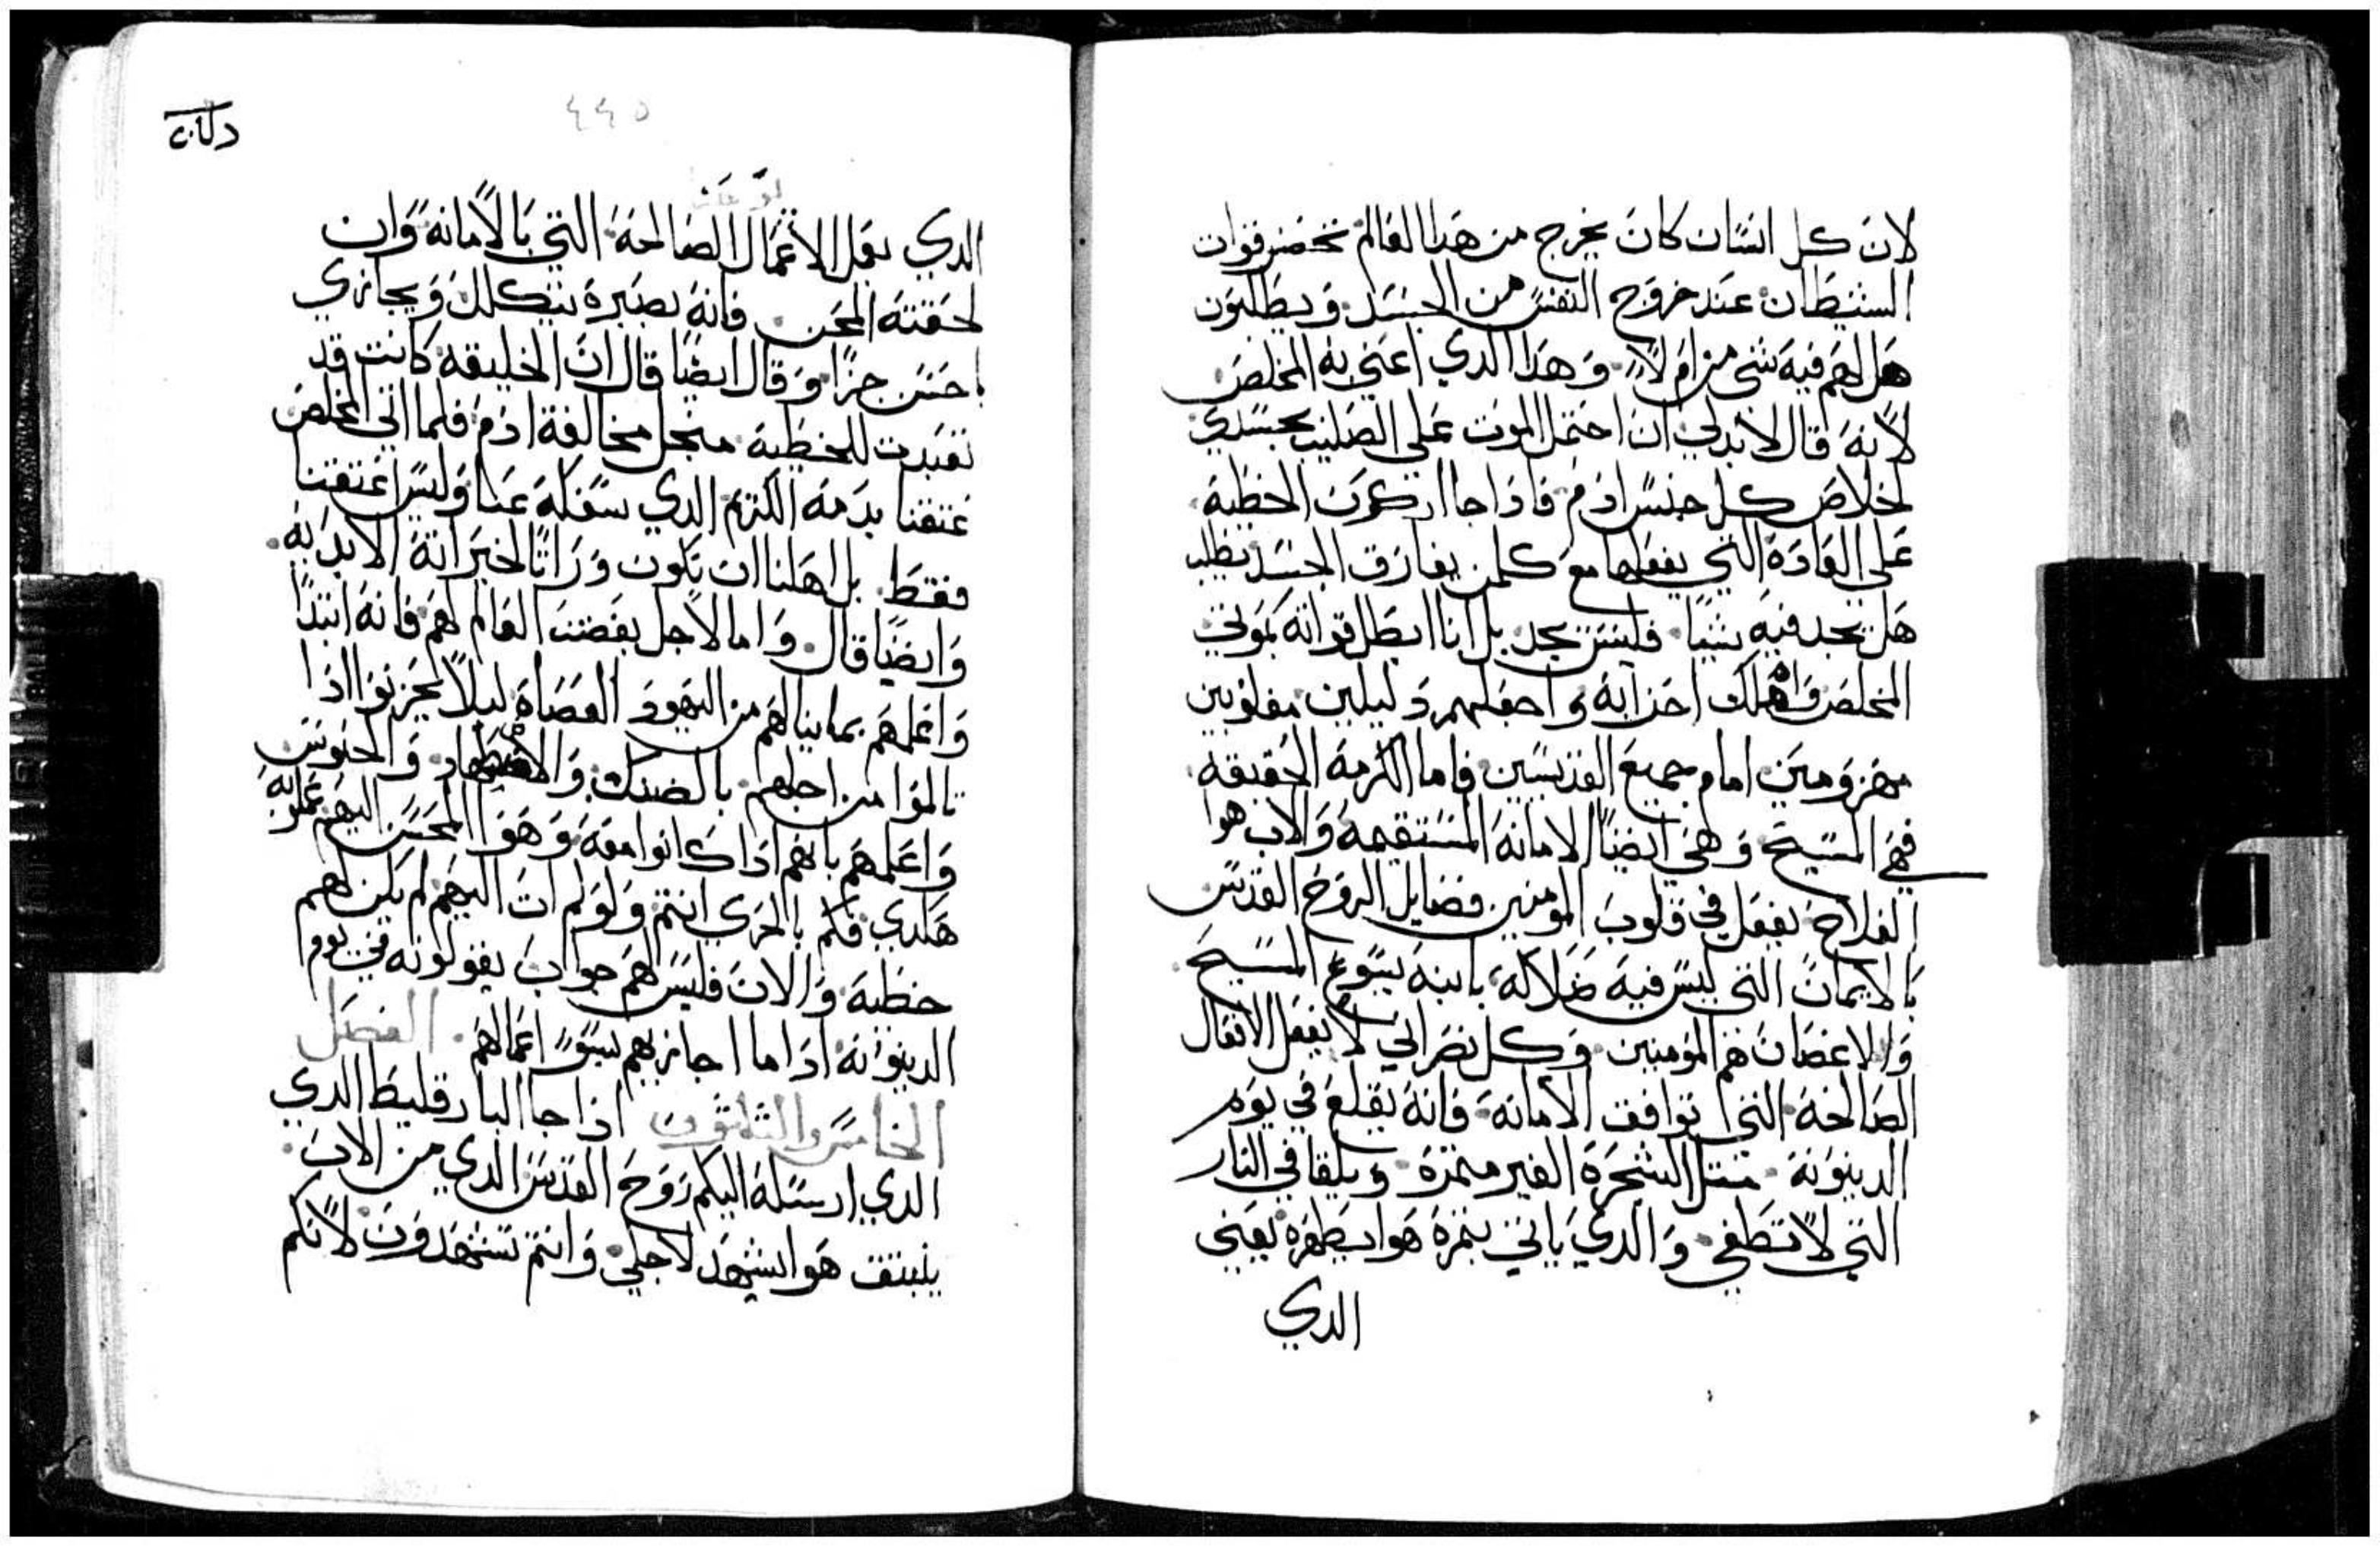 لان كل انسان كان يخرج من هدا العالم تحضر قوات
الشيطان عند خروج النفس من الجسد ويطلبون
هل لهم فيه شي من ام لا وهدا الدي اعني به المخلص
لانه قال لابد لي ان احتمل الموت على الصليب بجسدي
لخلاص كل جنس ادم فادا جا اركون الخطية
على العادة التي يفعلها مع كلمن يفارق الجسد يطلب
هل تجد فيه شيا فليس يجد بل انا ابطل قواته بموتي
المخلص واهلك احزابه واجعلهم دليلين مغلوبين
مهزومين امام جميع القديسين فاما الكرمة الحقيقه
فهي المسيح وهي ايضا الامانة المستقيمة والاب هوا
الفلاح يفعل في قلوب المومنين فضايل الروح القدس
بالايمان التي ليس فيه ضلاله بابنه يسوع المسيح
والاغصان هم المومنين وكل نصراني لا يفعل الافعال
الصالحة التي توافق الامانة فانه يقلع في يوم
الدينونة متل الشجرة الغير متمرة ويلقا في النار
التي لا تطفي والدي ياتي بتمرة هوا يطهره يعني
الدي
٤٤٥
الدي يعمل الاعمال الصالحة التي بالامانة وان
لحقته المحن فانه بصبره يتكلل ويجازي
احسن جزا وقال ايضا قال ان الخليقه كانت قد
تعبدت للخطية منجل مخالفة ادم فلما اتى المخلص
عتقنا بدمه الكريم الدي سفكه عنا وليس عتقنا
فقط بل اهلنا ان نكون وراثا لخيراته الابديه
وايضا قال واما لاجل بغضت العالم لهم فانه ابتدا
واعلمهم بما ينالهم من اليهود العصاه ليلا يحزنوا ادا
تالموا من اجلهم بالضنك والاضطهاد والحبوس
واعلمهم بانهم ادا كانوا معه وهو المحسن اليهم عملو به
هكدي فكم بالحري انتم ولو لم ات اليهم لم يكن لهم
خطية والان فليس لهم جواب يقولونه في يوم
الدينونة ادا ما اجازيهم بسو اعمالهم الفصل
الخامس والتلاتون ادا جا البارقليط الدي
الدي ارسله اليكم روح القدس الدي من الاب
ينبتق هوا يشهد لاجلي وانتم تشهدون لانكم